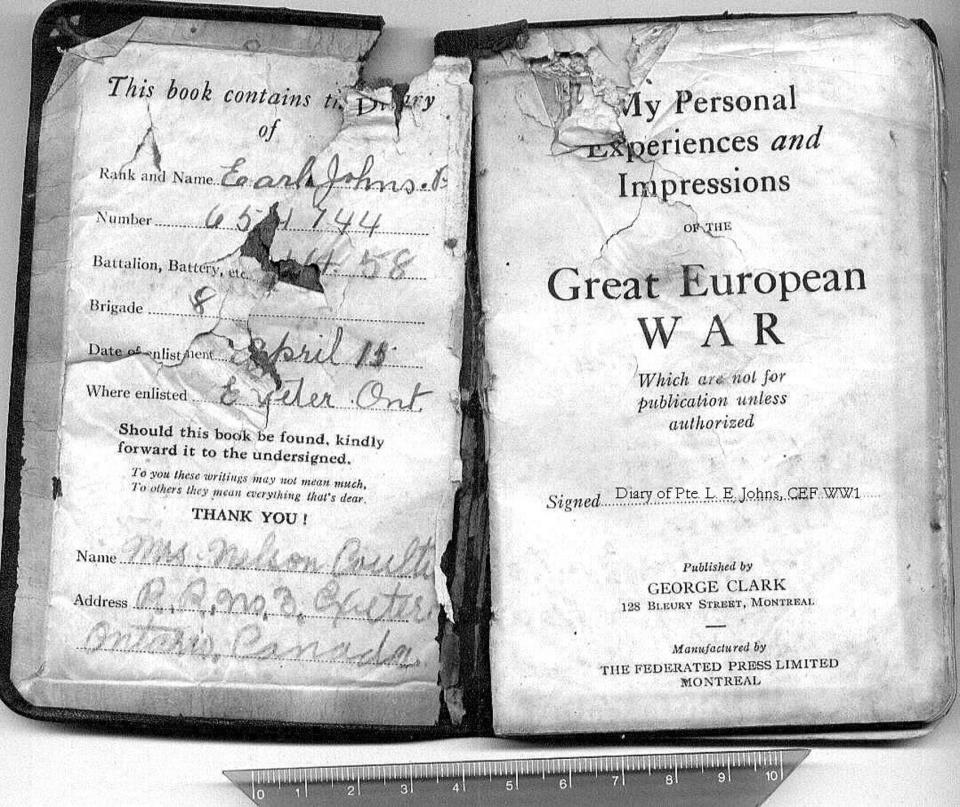 This book contains the Diary
of
Rank and Name Earl Johns.
Number 654744
Battalion, Battery, etc. 58
Brigade 8
Date of enlistment April 15
Where enlisted Exeter Ont.
Should this book be found, kindly
forward it to the undersigned.
To you these writings may not mean much,
To others they mean everything that's dear.
THANK YOU !
Name Mrs. Nelson Coulti
Address R. R. no 3, Exeter.
Ontario, Canada.
My Personal
Experiences and
Impressions
OF THE
Great European
WAR
Which are not for
publication unless
authorized
Signed Diary of Pte. L. E. Johns, CEF WW1
Published by
GEORGE CLARK
128 BLEURY STREET, MONTREAL
Manufactured by
THE FEDERATED PRESS LIMITED
MONTREAL
0 1 2 3 4 5 6 7 8 9 10